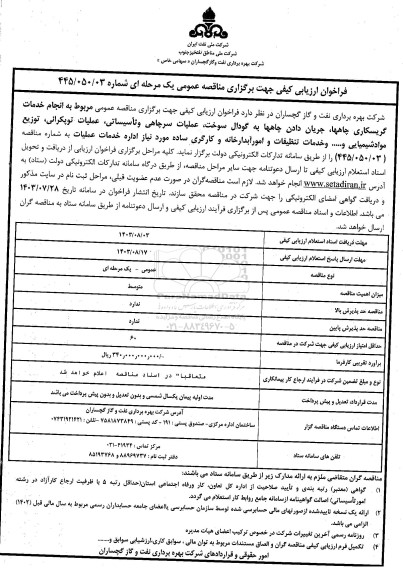 شرکت ملی نفت ایران
شرکت ملی مناطق نفتخیز جنوب
شرکت بهره برداری نفت و گاز گچساران «سهامی خاص»
فراخوان ارزیابی کیفی جهت برگزاری مناقصه عمومی یک مرحله ای شماره ۴۴۵/۰۵۰/۰۳
شرکت بهره برداری نفت و گاز گچساران در نظر دارد فراخوان ارزیابی کیفی جهت برگزاری مناقصه عمومی مربوط به انجام خدمات
گریسکاری چاهها، جریان دادن چاهها به گودال سوخت، عملیات سرچاهی وتأسیساتی، عملیات توپکرانی، توزیع
موادشیمیایی و..... وخدمات تنظیفات و امورآبدارخانه و کارگری ساده مورد نیاز اداره خدمات عملیات به شماره مناقصه
(۴۴۵/۰۵۰/۰۳) را از طریق سامانه تدارکات الکترونیکی دولت برگزار نماید. کلیه مراحل برگزاری فراخوان ارزیابی از دریافت و تحویل
اسناد استعلام ارزیابی کیفی تا ارسال دعوتنامه جهت سایر مراحل مناقصه، از طریق درگاه سامانه تدارکات الکترونیکی دولت (ستاد) به
آدرس www.setadiran.ir انجام خواهد شد. لازم است مناقصه‌گران در صورت عدم عضویت قبلی، مراحل ثبت نام در سایت مذکور
و دریافت گواهی امضای الکترونیکی را جهت شرکت در مناقصه محقق سازند. تاریخ انتشار فراخوان در سامانه تاریخ ۱۴۰۳/۰۷/۲۸
می باشد. اطلاعات و اسناد مناقصه عمومی پس از برگزاری فرآیند ارزیابی کیفی و ارسال دعوتنامه از طریق سامانه ستاد به مناقصه گران
ارسال خواهد شد.
مهلت دریافت اسناد استعلام ارزیابی کیفی ۱۴۰۳/۰۸/۰۳
مهلت ارسال پاسخ استعلام ارزیابی کیفی ۱۴۰۳/۰۸/۱۷
نوع مناقصه عمومی - یک مرحله ای
میزان اهمیت مناقصه متوسط
مناقصه حد پذیرش بالا ندارد
مناقصه حد پذیرش پایین ندارد
حداقل امتیاز ارزیابی کیفی جهت شرکت در مناقصه ۶۰
برآورد تقریبی کارفرما ریال
نوع و مبلغ تضمین شرکت در فرآیند ارجاع کار پیمانکاری متعاقبا" در اسناد مناقصه اعلام خواهد شد
مدت قرارداد، تعدیل و پیش پرداخت مدت اولیه پیمان یکسال شمسی و بدون تعدیل و بدون پیش پرداخت می باشد
اطلاعات تماس دستگاه مناقصه گزار آدرس شرکت بهره برداری نفت و گاز گچساران
ساختمان اداره مرکزی - صندوق پستی : ۱۹۱ - کد پستی :
تلفن های سامانه ستاد مرکز تماس: ۴۱۹۳۴-۰۲۱
دفتر ثبت نام: ۸۸۹۶۹۷۳۷ و ۸۵۱۹۳۷۶۸
مناقصه گران متقاضی ملزم به ارائه مدارک زیر از طریق سامانه ستاد می باشند:
۱) گواهی (معتبر) رتبه بندی و تأیید صلاحیت از اداره کل تعاون، کار ورفاه اجتماعی استان(حداقل رتبه ۵ با ظرفیت ارجاع کارآزاد در رشته
امور تأسیساتی) اصالت گواهینامه ازسامانه جامع روابط کار استعلام می گردد.
۲) ارائه یک نسخه تاییدشده ازصورتهای مالی حسابرسی شده توسط سازمان حسابرسی یااعضای جامعه حسابداران رسمی مربوط به سال مالی قبل (۱۴۰۲)
الزامی می باشد.
۳) روزنامه رسمی آخرین تغییرات شرکت در خصوص ترکیب اعضای هیات مدیره
۴) تکمیل فرم ارزیابی کیفی مناقصه گران و الصاق مستندات مربوط به توان مالی، سوابق کاری،ارزشیابی سوابق و....
امور حقوقی و قراردادهای شرکت بهره برداری نفت و گاز گچساران